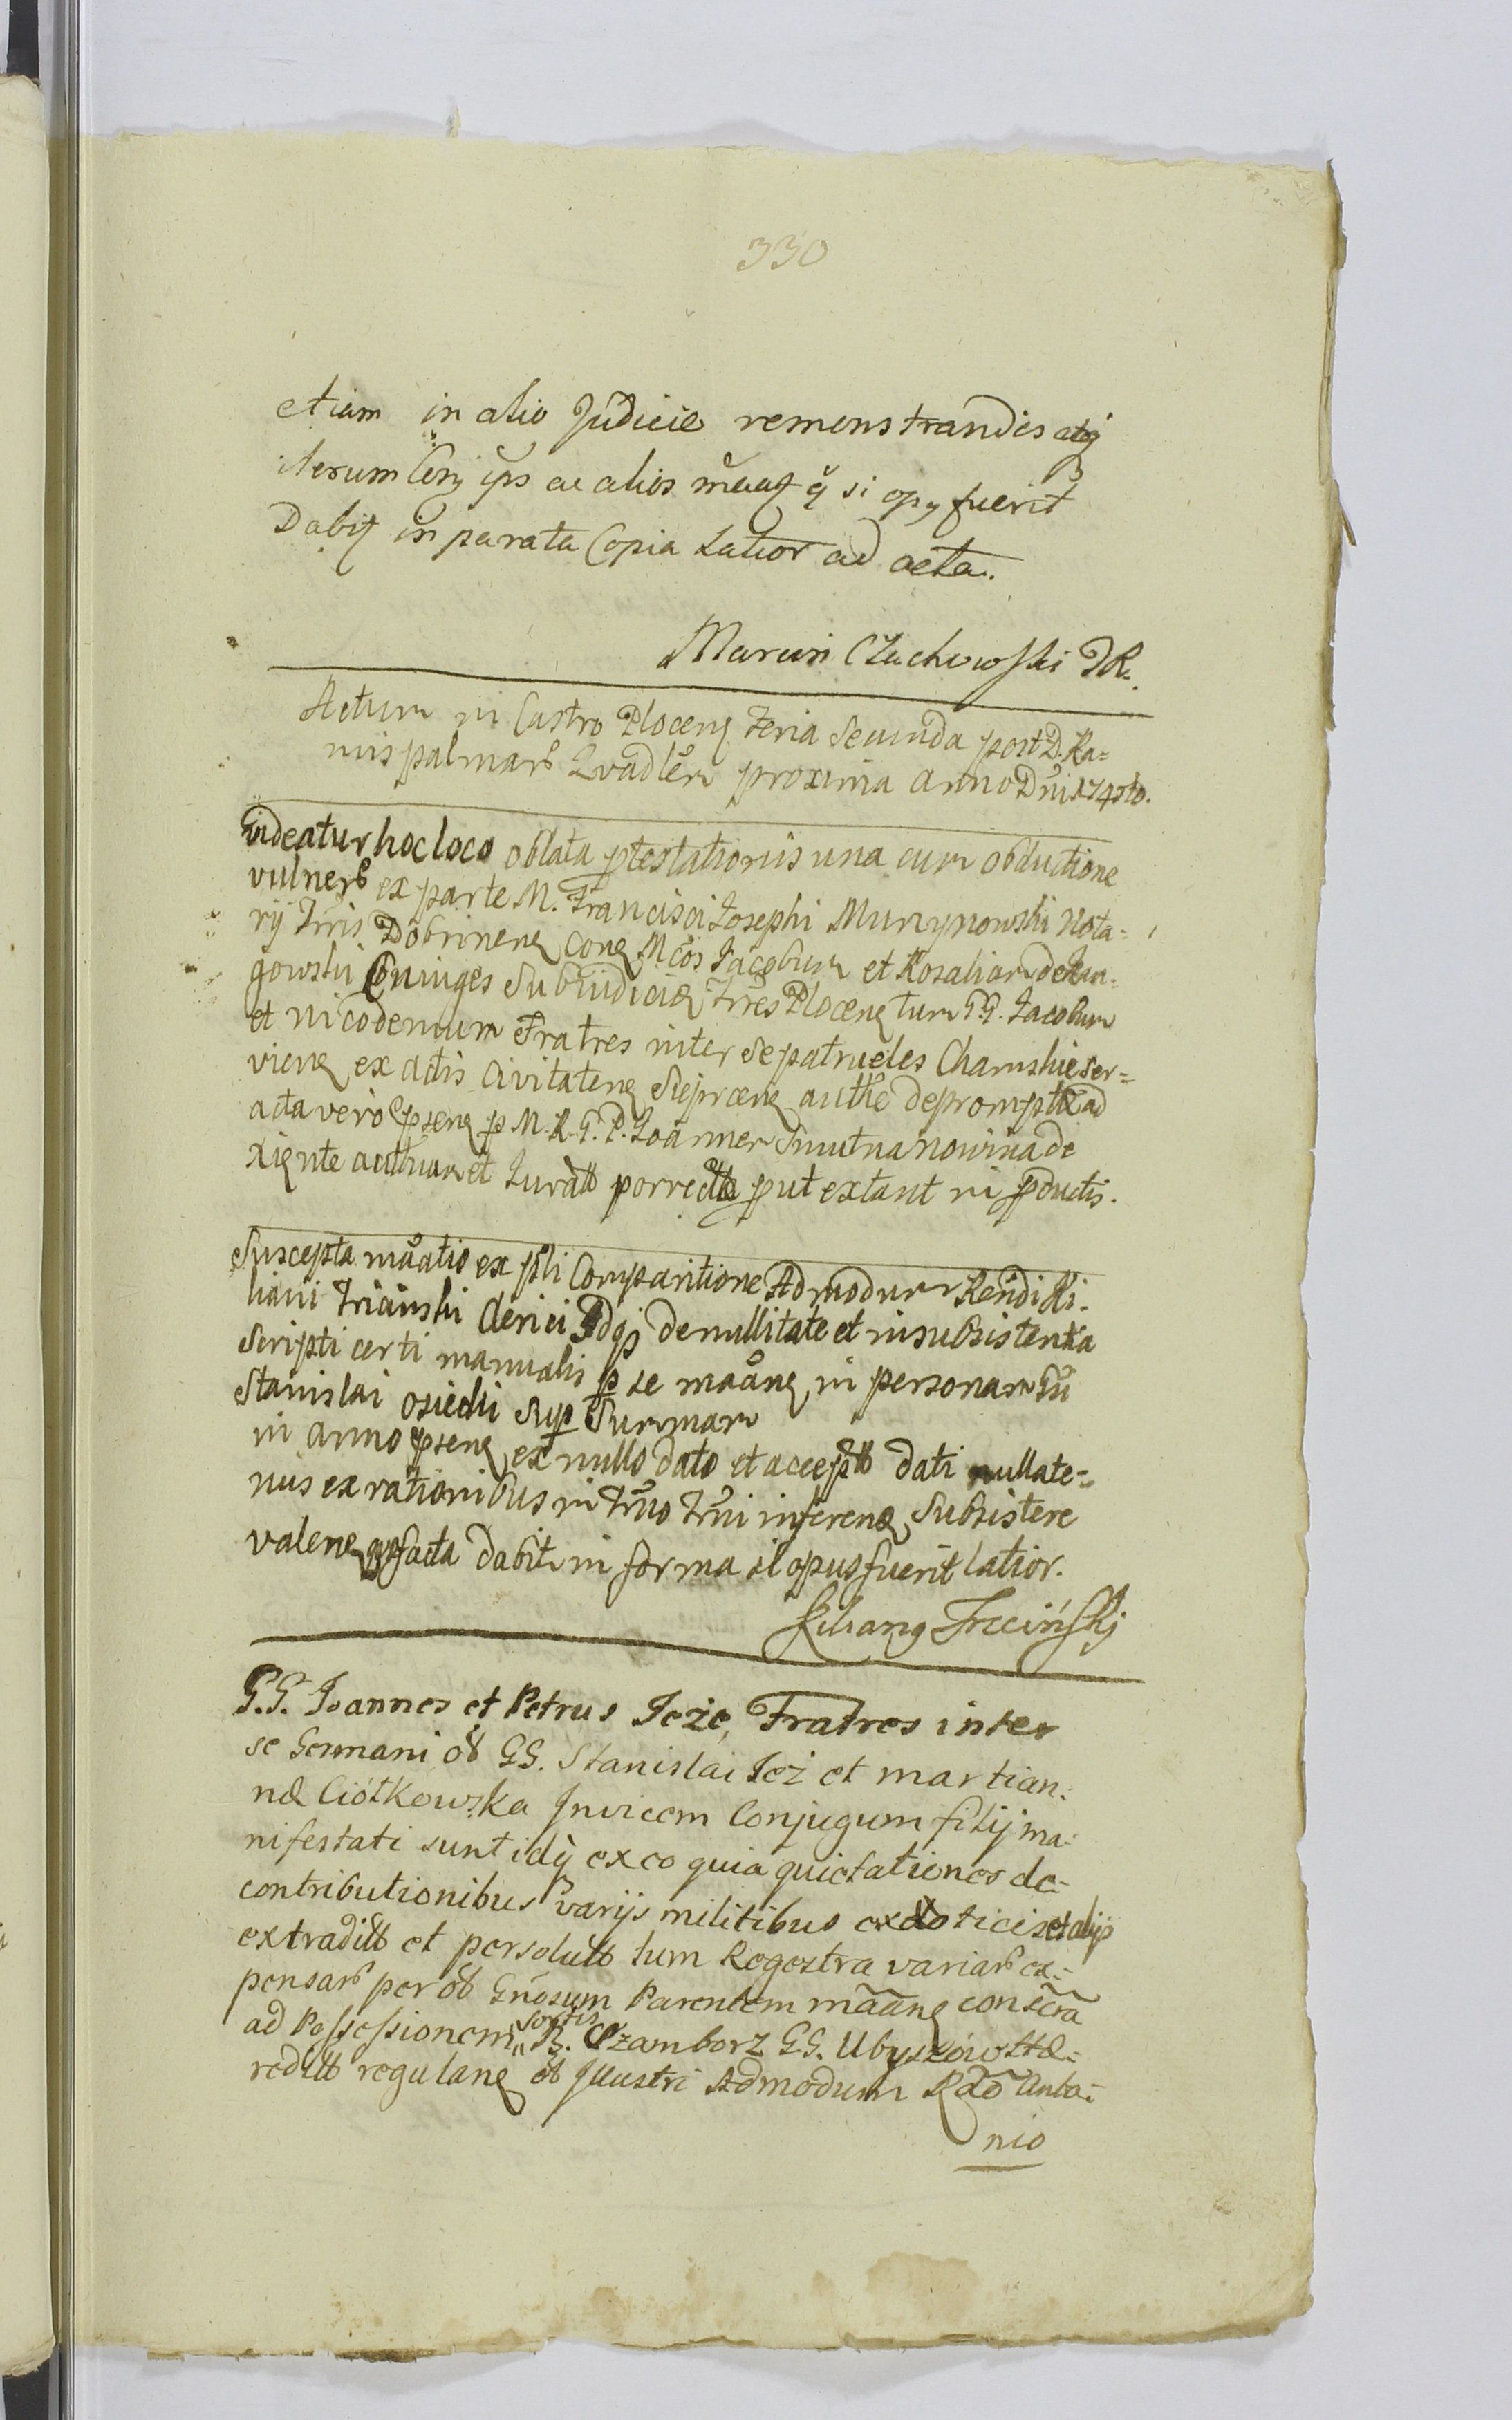 330
etiam in alio Judicio remonstrandis atq
iterum Cong ips ac alios
si opy fuerit
Dabit in parata Copia Latior ad acta.
Marcin Czachowski DR.
Actum in Castro Plocenq Feria Secunda post D. Ra=
mis palmarô Qvadlêm proxima anno Dni 174
Videatur hoc loco oblata ptestationis una cum obductione
vulnerô ex parte M. Francisci Josephi Murzynowski Nota=
rij Tris Dobrinenq conq M̃cos Jacobum et Rosaliam de
gowski Coniuges Subiudiciq Tris Plocenq tum GG. Jacobum
et Nicodemum Fratres inter se patrueles Chamskie ser=
vienq ex actis Civitatenq Sieprcenq authê depromptæ ad
acta vero pñsenq p M. R. G. P. Joannem Smutna nowina de
et Jurato porrectæ put extant in pductis.
Suscepta mãatio ex pñli Comparitione Admodum Rendi Ki=
liani Trciński Clerici Idqz de nullitate et insubsistentia
Scripti certi manualis p se mãanq in personam Gñi
Stanislai Osiecki Sup Summam
in anno pñsenq ex nullo dato et accepto dati nullate=
nus ex rationibus in Trño Trñi inferenq Subsistere
valenq qvo facta dabit in forma si opus fuerit latior.
Kilianq Trcińskj
G.G. Joannes et Petrus Jeże, Fratres inter
se Germani ôb GG. Stanislai Jeż et martian=
næ Ciółkowska Invicem Conjugum filij ma=
nifestati sunt idq ex eo quia quietationes de
contributionibus varijs militibus exoticis et alijs
extradittô et persoluttô tum Regestra variarô ex=
pensarô per ôb Gñosum Parentem mãanq conscrã
ad Possessionem sortis B. Czamborz GG. Ubyszowskæ
redittô regulanq ôb Illustri Admodum Rdõ Anto=
nio